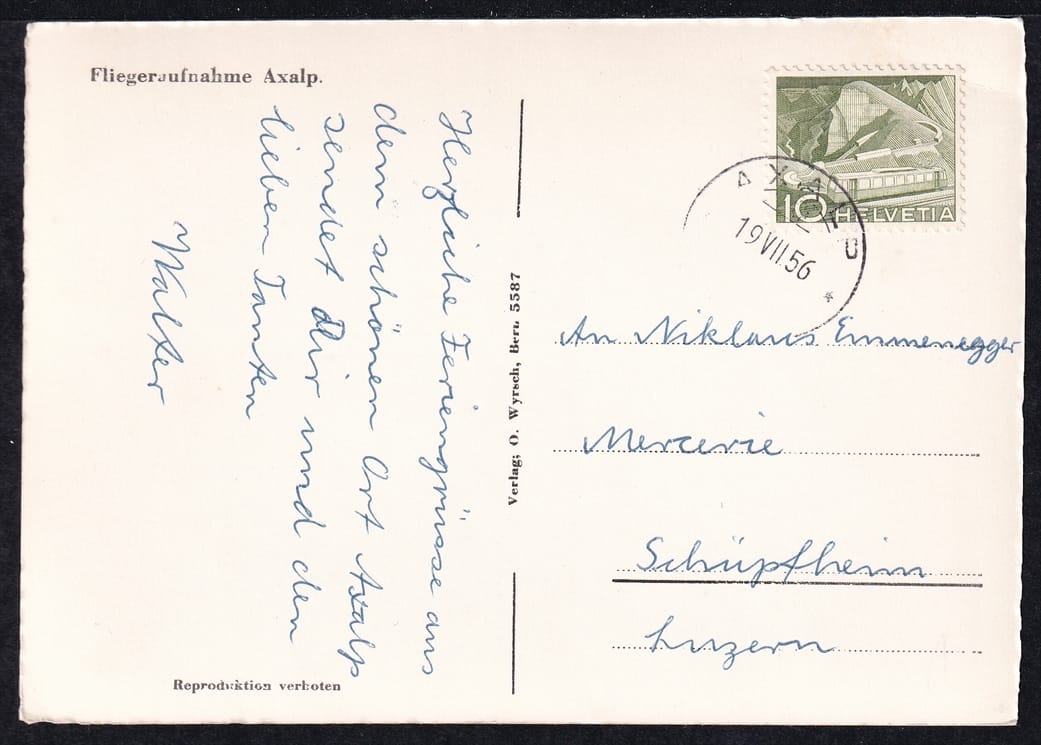 Fliegeraufnahme Axalp.
Herzliche Feriengrüsse aus
dem schönen Ort Axalp
sendet Dir und den
lieben Tanten
Walter
Reproduktion verboten
Verlag; O. Wyrsch, Bern. 5587
10 HELVETIA
AXALP
19 VII. 56
*
An Niklaus Emmenegger
Mercerie
Schüpfheim
Luzern